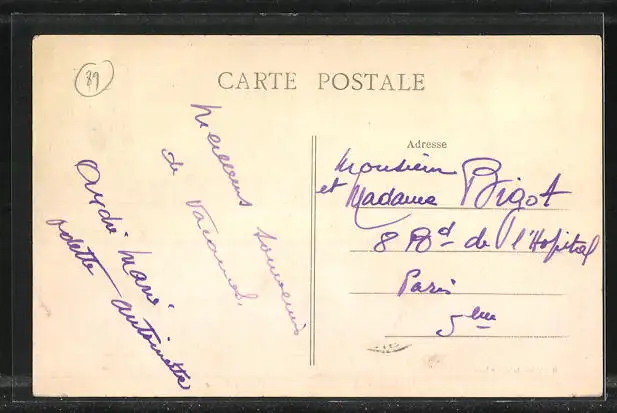 89
CARTE POSTALE
Meilleurs souvenirs
de Vacances.
André Marie
Odette Antoinette
Adresse
Monsieur
et Madame Bigot
8 Bd de l'Hopital
Paris
5eme